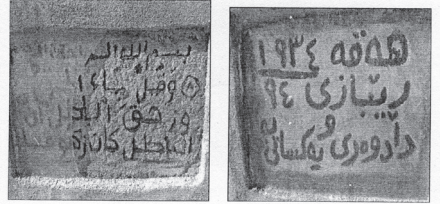 بسم الله الر
وقل جاء ا
وزهق البا
الباطل كان زه
هەقە ١٩٣٤
ریبازی ٩٤
دادوەری و یەکسانی